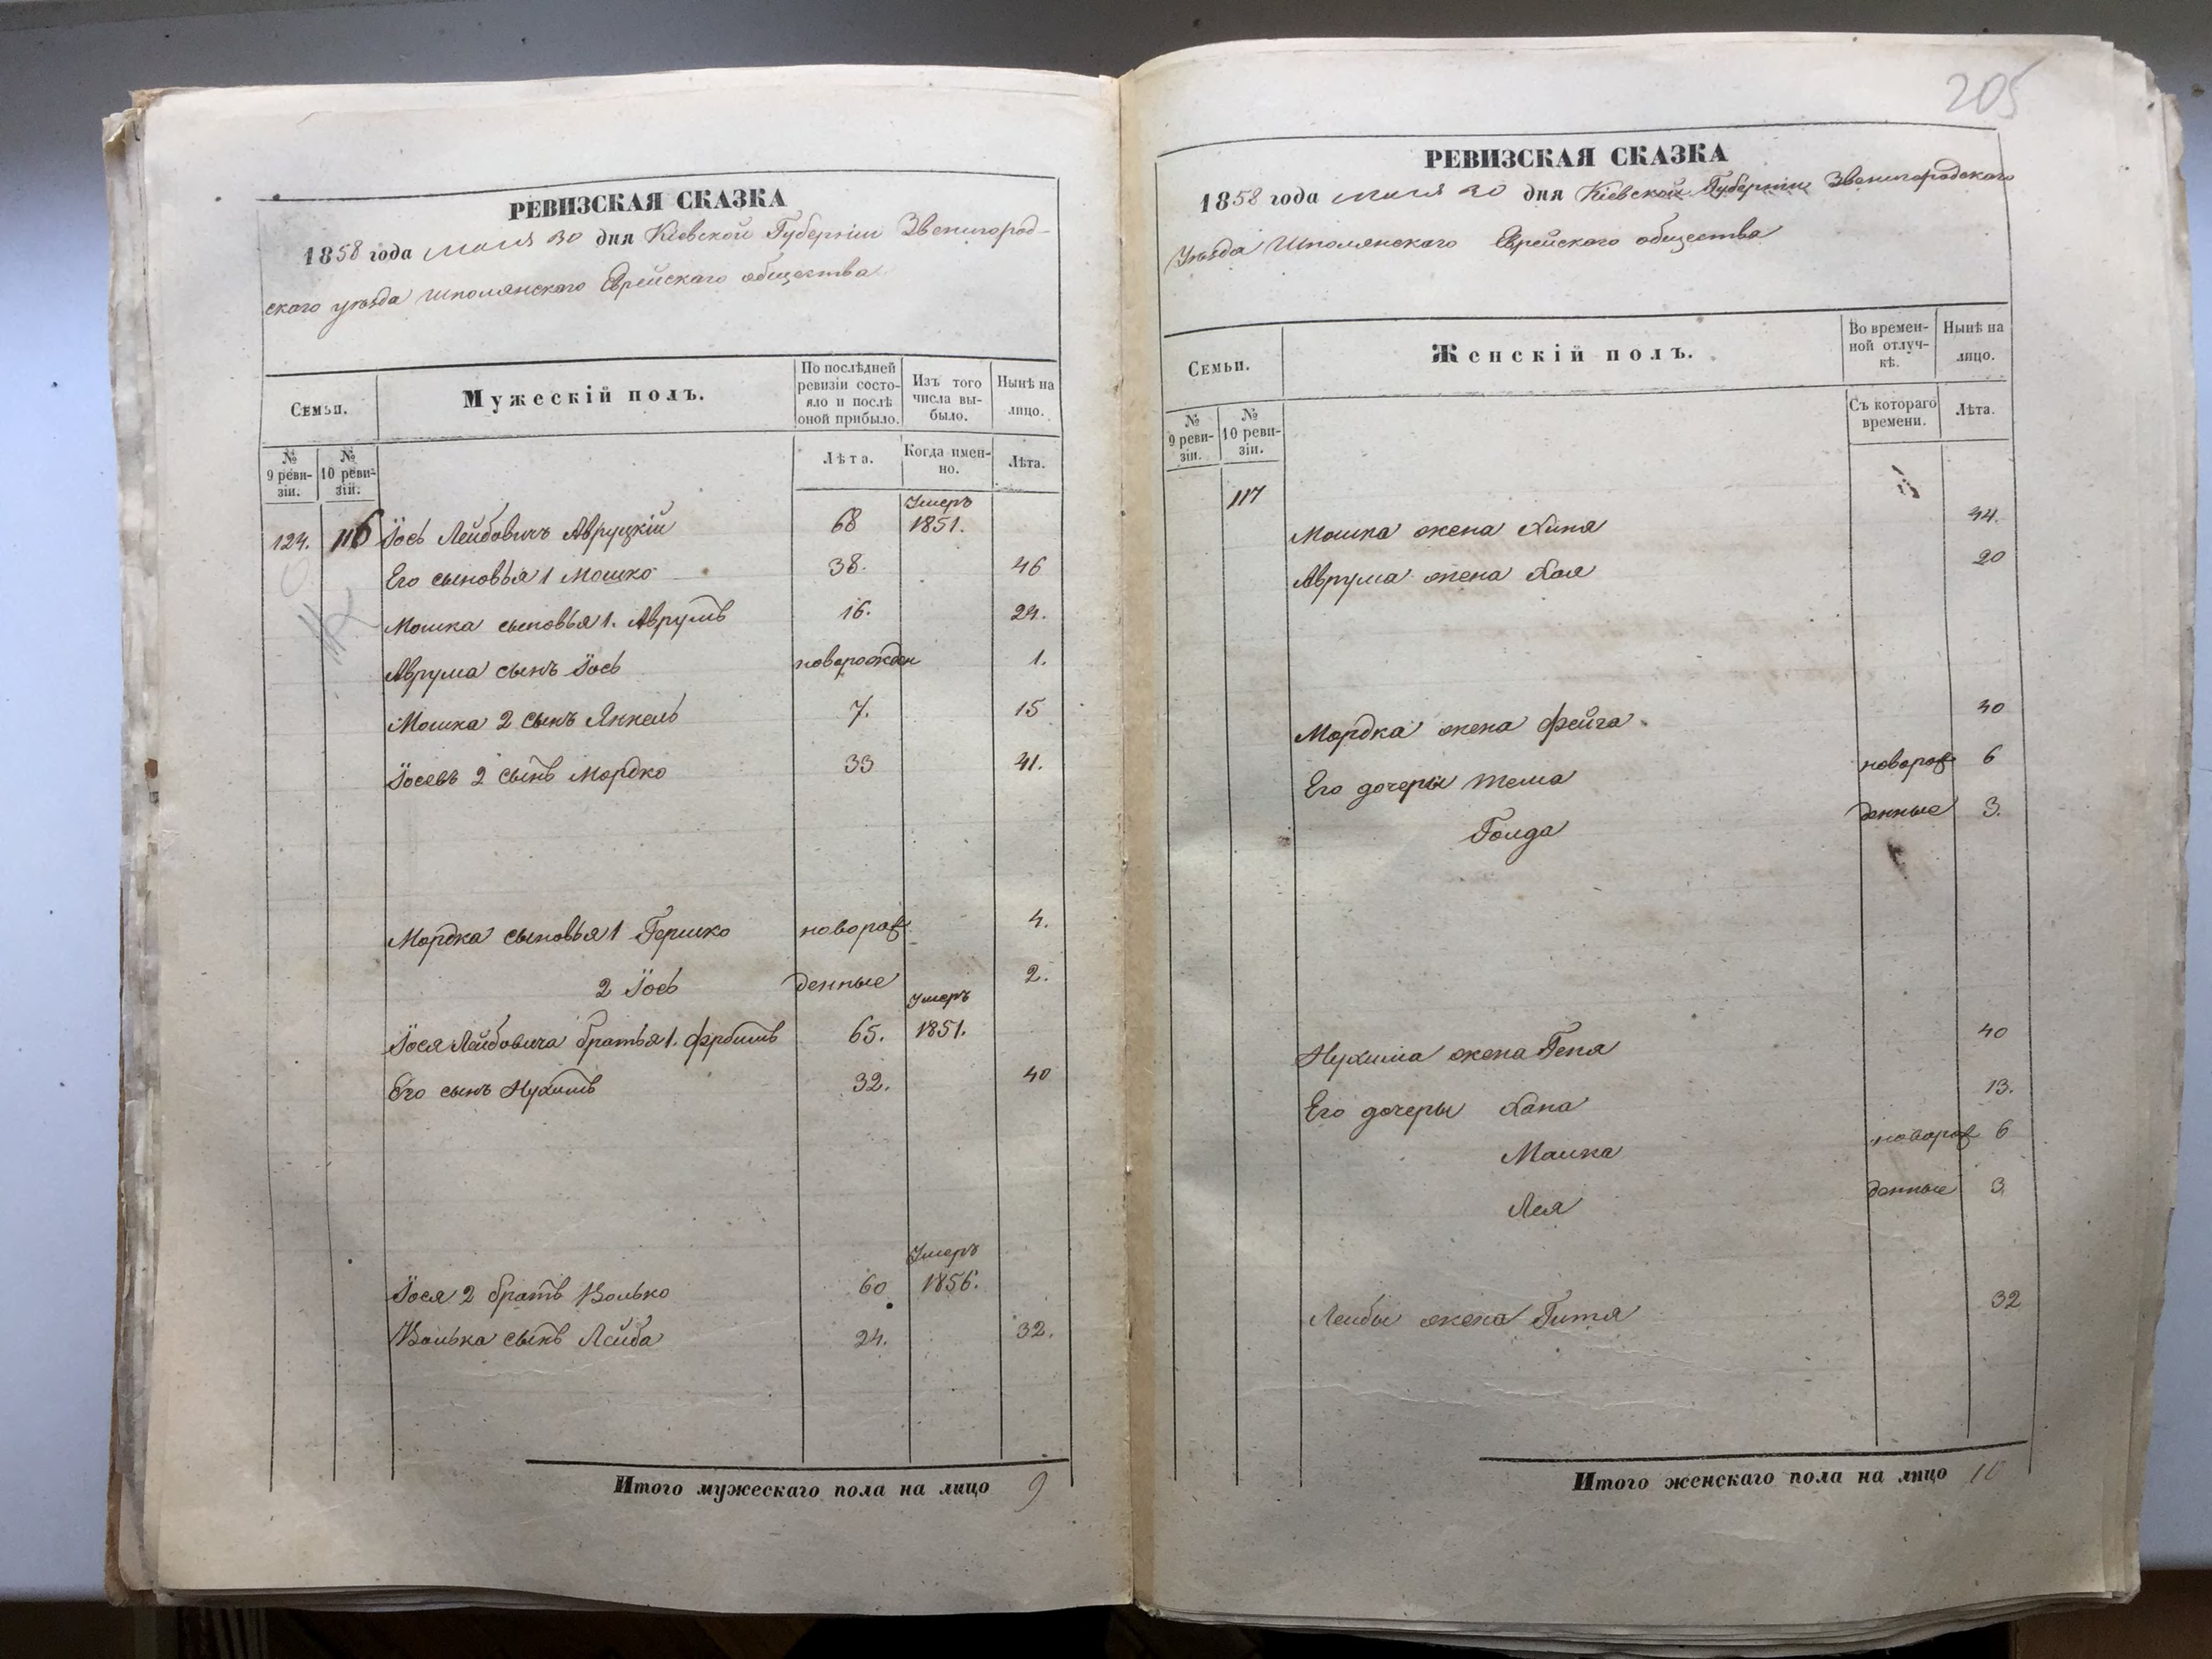 РЕВИЗСКАЯ СКАЗКА
1858 года мая 30 дня Кіевской Губерніи Звенигород-
скаго уѣзда Шполянскаго Еврейскаго общества
Семьи.
Мужескій полъ.
По послѣдней ревизіи состояло и послѣ оной прибыло.
Изъ того числа выбыло.
Нынѣ на лицо.
№ 9 ревизіи.
№ 10 ревизіи.
Лѣта.
Когда именно.
Лѣта.
124. 116 Іось Лейбовичъ Авруцкій 68 Умеръ 1851.
Его сыновья 1 Мошко 38. 46
Мошка сыновья 1. Аврумъ 16. 24.
Аврума сынъ Іось новорожден 1.
Мошка 2 сынъ Янкель 7. 15
Іосевъ 2 сынъ Мордко 33 41.
Мордка сыновья 1 Гершко новорож 4.
2 Іось денные 2.
Іося Лейбовича братья 1. 65. Умеръ 1851.
Его сынъ Нухимъ 32. 40
Іося 2 братъ Волько 60 Умеръ 1856.
Волька сынъ Лейба 24. 32.
Итого мужескаго пола на лицо 9
205
РЕВИЗСКАЯ СКАЗКА
1858 года мая 30 дня Кіевской Губерніи Звенигородскаго
Уѣзда Шполянскаго Еврейскаго общества
Семьи.
Женскій полъ.
Во временной отлучкѣ.
Нынѣ на лицо.
№ 9 ревизіи.
№ 10 ревизіи.
Съ котораго времени.
Лѣта.
117
Мошка жена Хиня 44.
Аврума жена Хая 20
Мордка жена Фейга 40
Его дочеры Тема новорож 6
Голда денные 3.
Нухима жена Геня 40
Его дочеры Хана 13.
Малка новорож 6
Лея денные 3
Лейбы жена Гитя 32
Итого женскаго пола на лицо 10